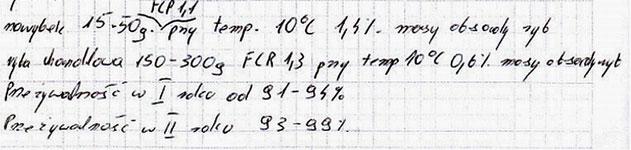 FCR 1,1
narybek 15-50g. przy temp. 10°C 1,4% masy obsady ryb
ryba handlowa 150-300g FCR 1,3 przy temp 10°C 0,6% masy obsady ryb
Przeżywalność w I roku od 91-94%
Przeżywalność w II roku 93-99%.